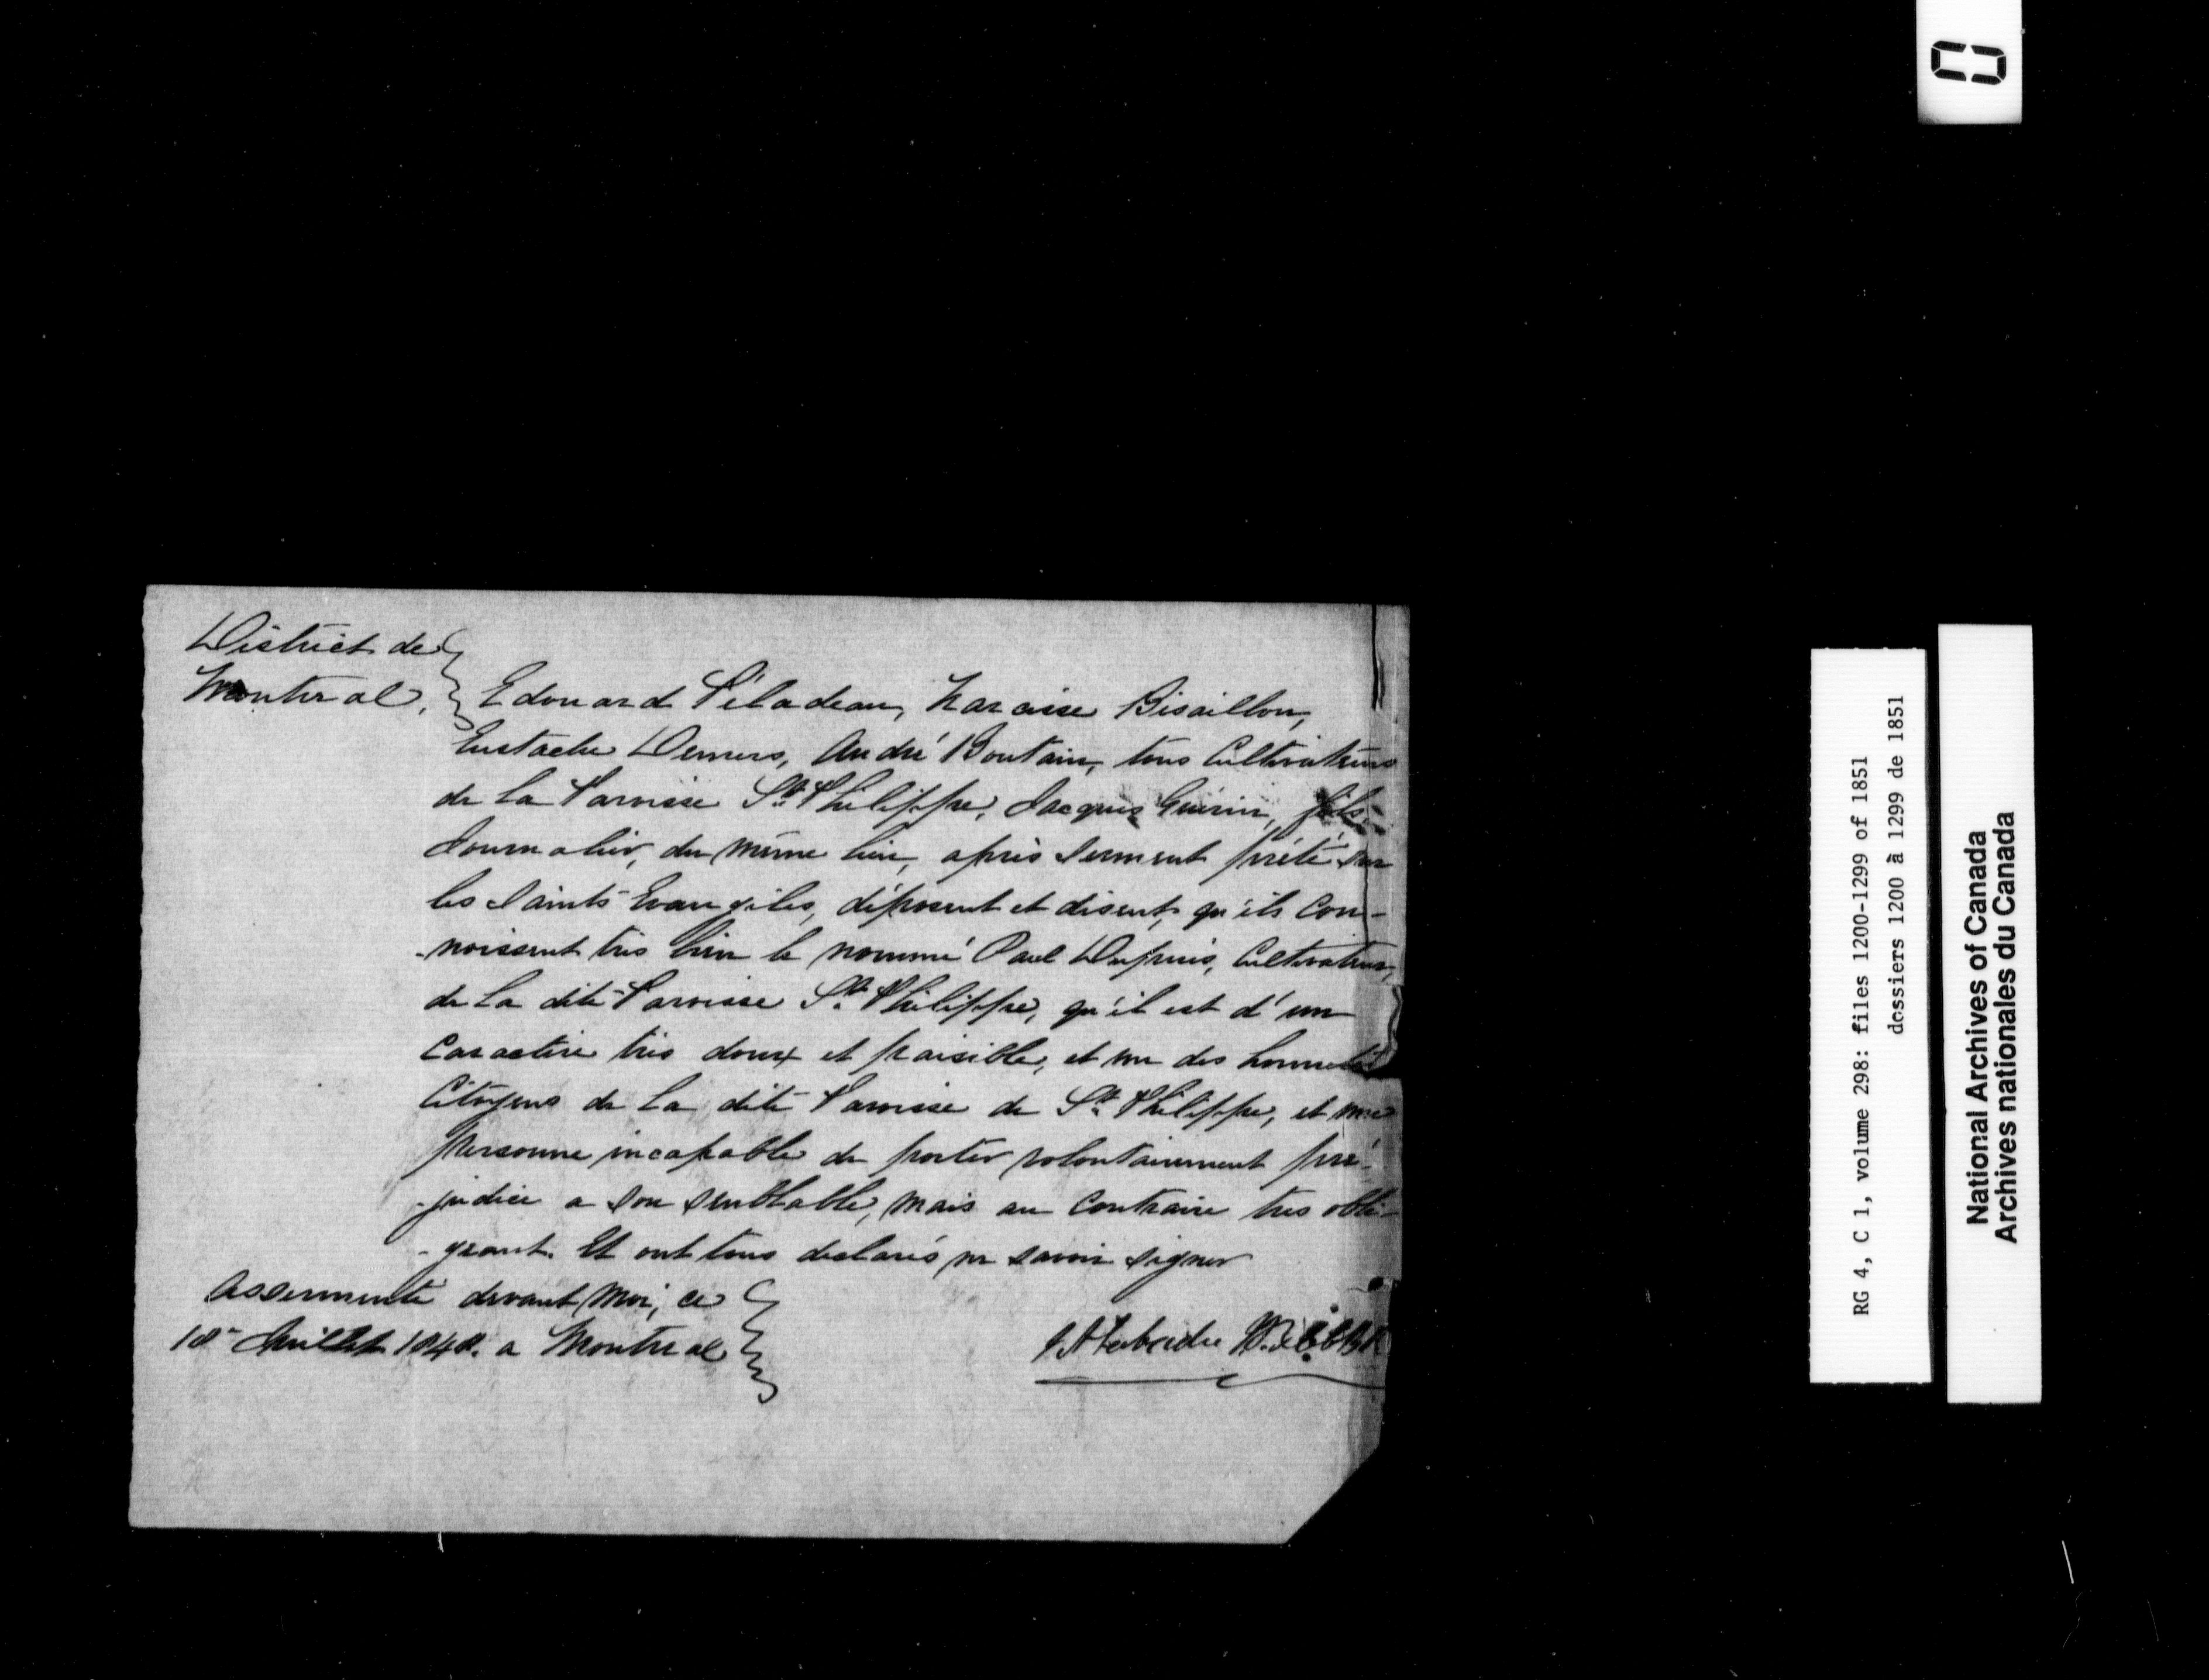 District de
Montreal,
Edouard Péladeau, Narcisse Bisaillon,
Eustache Demers, André Boutain, tous Cultivateurs
de la Paroisse St. Philippe, Jacques Guérin, fils,
Journalier, du même lieu, après serment prêté sur
les Saints Evangiles, déposent et disent, qu'ils Con-
-noissent très bien le nommé Paul Dupuis, Cultivateur,
de la dite Paroisse St. Philippe, qu'il est d'un
Caractère très doux et paisible, et un des honnêtes
Citoyens de la dite Paroisse de St. Philippe, et une
personne incapable de porter volontairement pré-
-judice a son semblable, mais au Contraire tres obli-
-geant. Et ont tous declarés ne savoir signer
Assermenté devant Moi, ce
18e Juillet 1848. a Montreal
RG 4, C 1, volume 298: files 1200-1299 of 1851
dossiers 1200 à 1299 de 1851
National Archives of Canada
Archives nationales du Canada